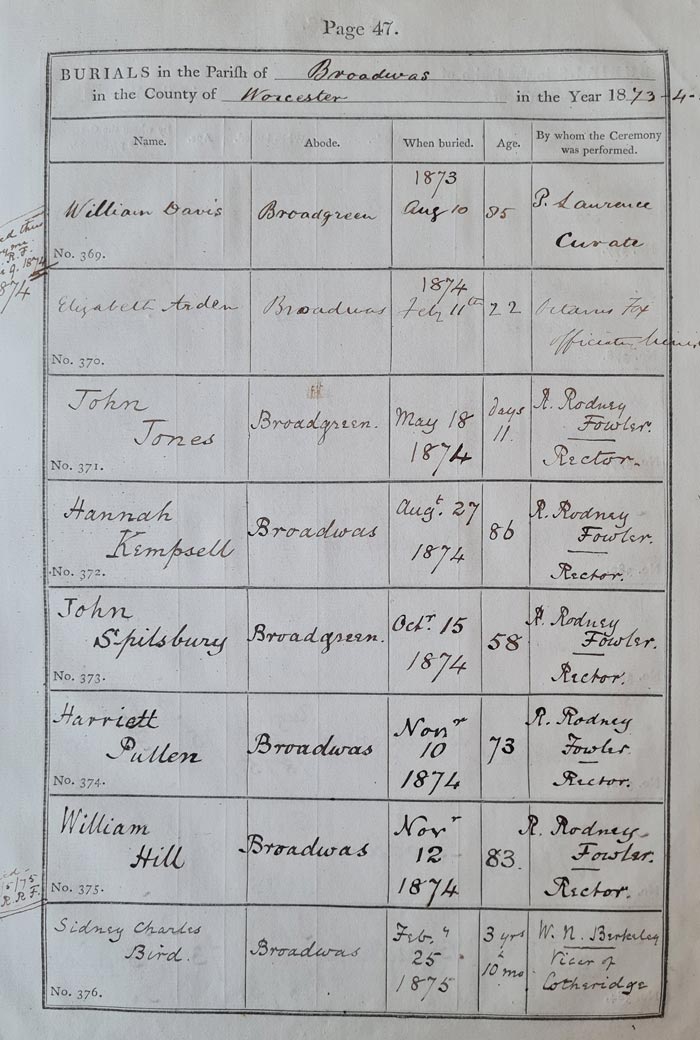 Page 47.
BURIALS in the Parish of Broadwas
in the County of Worcester in the Year 1873-4-
Name. Abode. When buried. Age. By whom the Ceremony was performed.
1873
William Davis Broadgreen Aug 10 85 P. Laurence
Curate
No. 369.
1874
Elizabeth Arden Broadwas Feby 11th 22 Octavius Fox
officiating
No. 370.
John Jones Broadgreen. May 18 1874 days 11. R. Rodney Fowler. Rector.
No. 371.
Hannah Kempsell Broadwas Augt. 27 1874 86 R. Rodney Fowler. Rector.
No. 372.
John Spilsbury Broadgreen. Octr. 15 1874 58 R. Rodney Fowler. Rector.
No. 373.
Harriett Pullen Broadwas Novr 10 1874 73 R. Rodney Fowler Rector.
No. 374.
William Hill Broadwas Novr 12 1874 83. R. Rodney Fowler. Rector.
No. 375.
Sidney Charles Bird. Broadwas Feb.y 25 1875 3 yrs 10 mo W. N. Berkeley Vicar of Cotheridge
No. 376.
R. F.
1874
R. F.